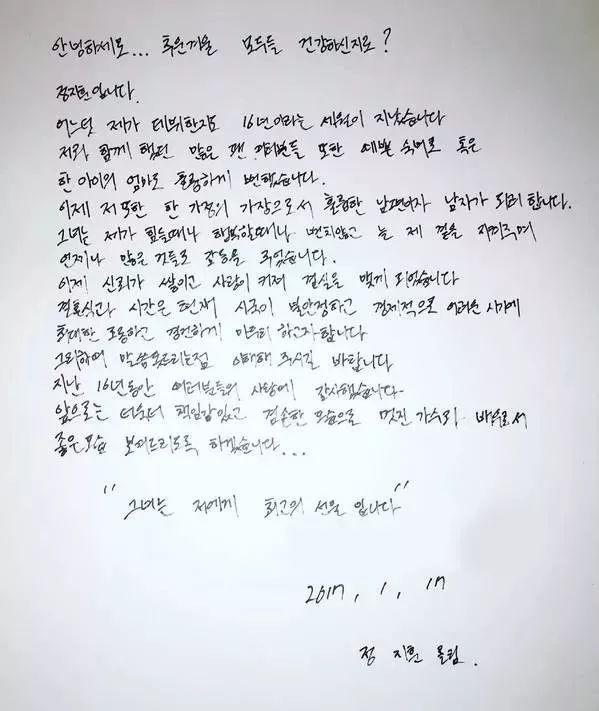 안녕하세요... 추운겨울 모두들 건강하신지요?
정지훈입니다.
어느덧 제가 데뷔한지도 16년이라는 세월이 지났습니다
저와 함께 했던 많은 팬 여러분들 또한 예쁜 숙녀로 혹은
한 아이의 엄마로 훌륭하게 변했습니다.
이제 저 또한 한 가정의 가장으로서 훌륭한 남편이자 남자가 되려 합니다.
그녀는 제가 힘들때나 행복할때나 변치않고 늘 제 곁을 지켜주며
언제나 많은 것들로 감동을 주었습니다.
이제 신뢰가 쌓이고 사랑이 커져 결실을 맺게 되었습니다
결혼식과 시간은 현재 시국이 불안정하고 경제적으로 어려운 시기에
최대한 조용하고 경건하게 미루려 하고자합니다
그리하여 말씀못드리는점 이해해 주시길 바랍니다
지난 16년동안 여러분들의 사랑에 감사했습니다.
앞으로는 더욱더 책임감있고 겸손한 모습으로 멋진 가수와 배우로서
좋은모습 보여드리도록 하겠습니다...
"그녀는 저에게 최고의 선물 입니다"
2017. 1. 17
정 지훈 올림.